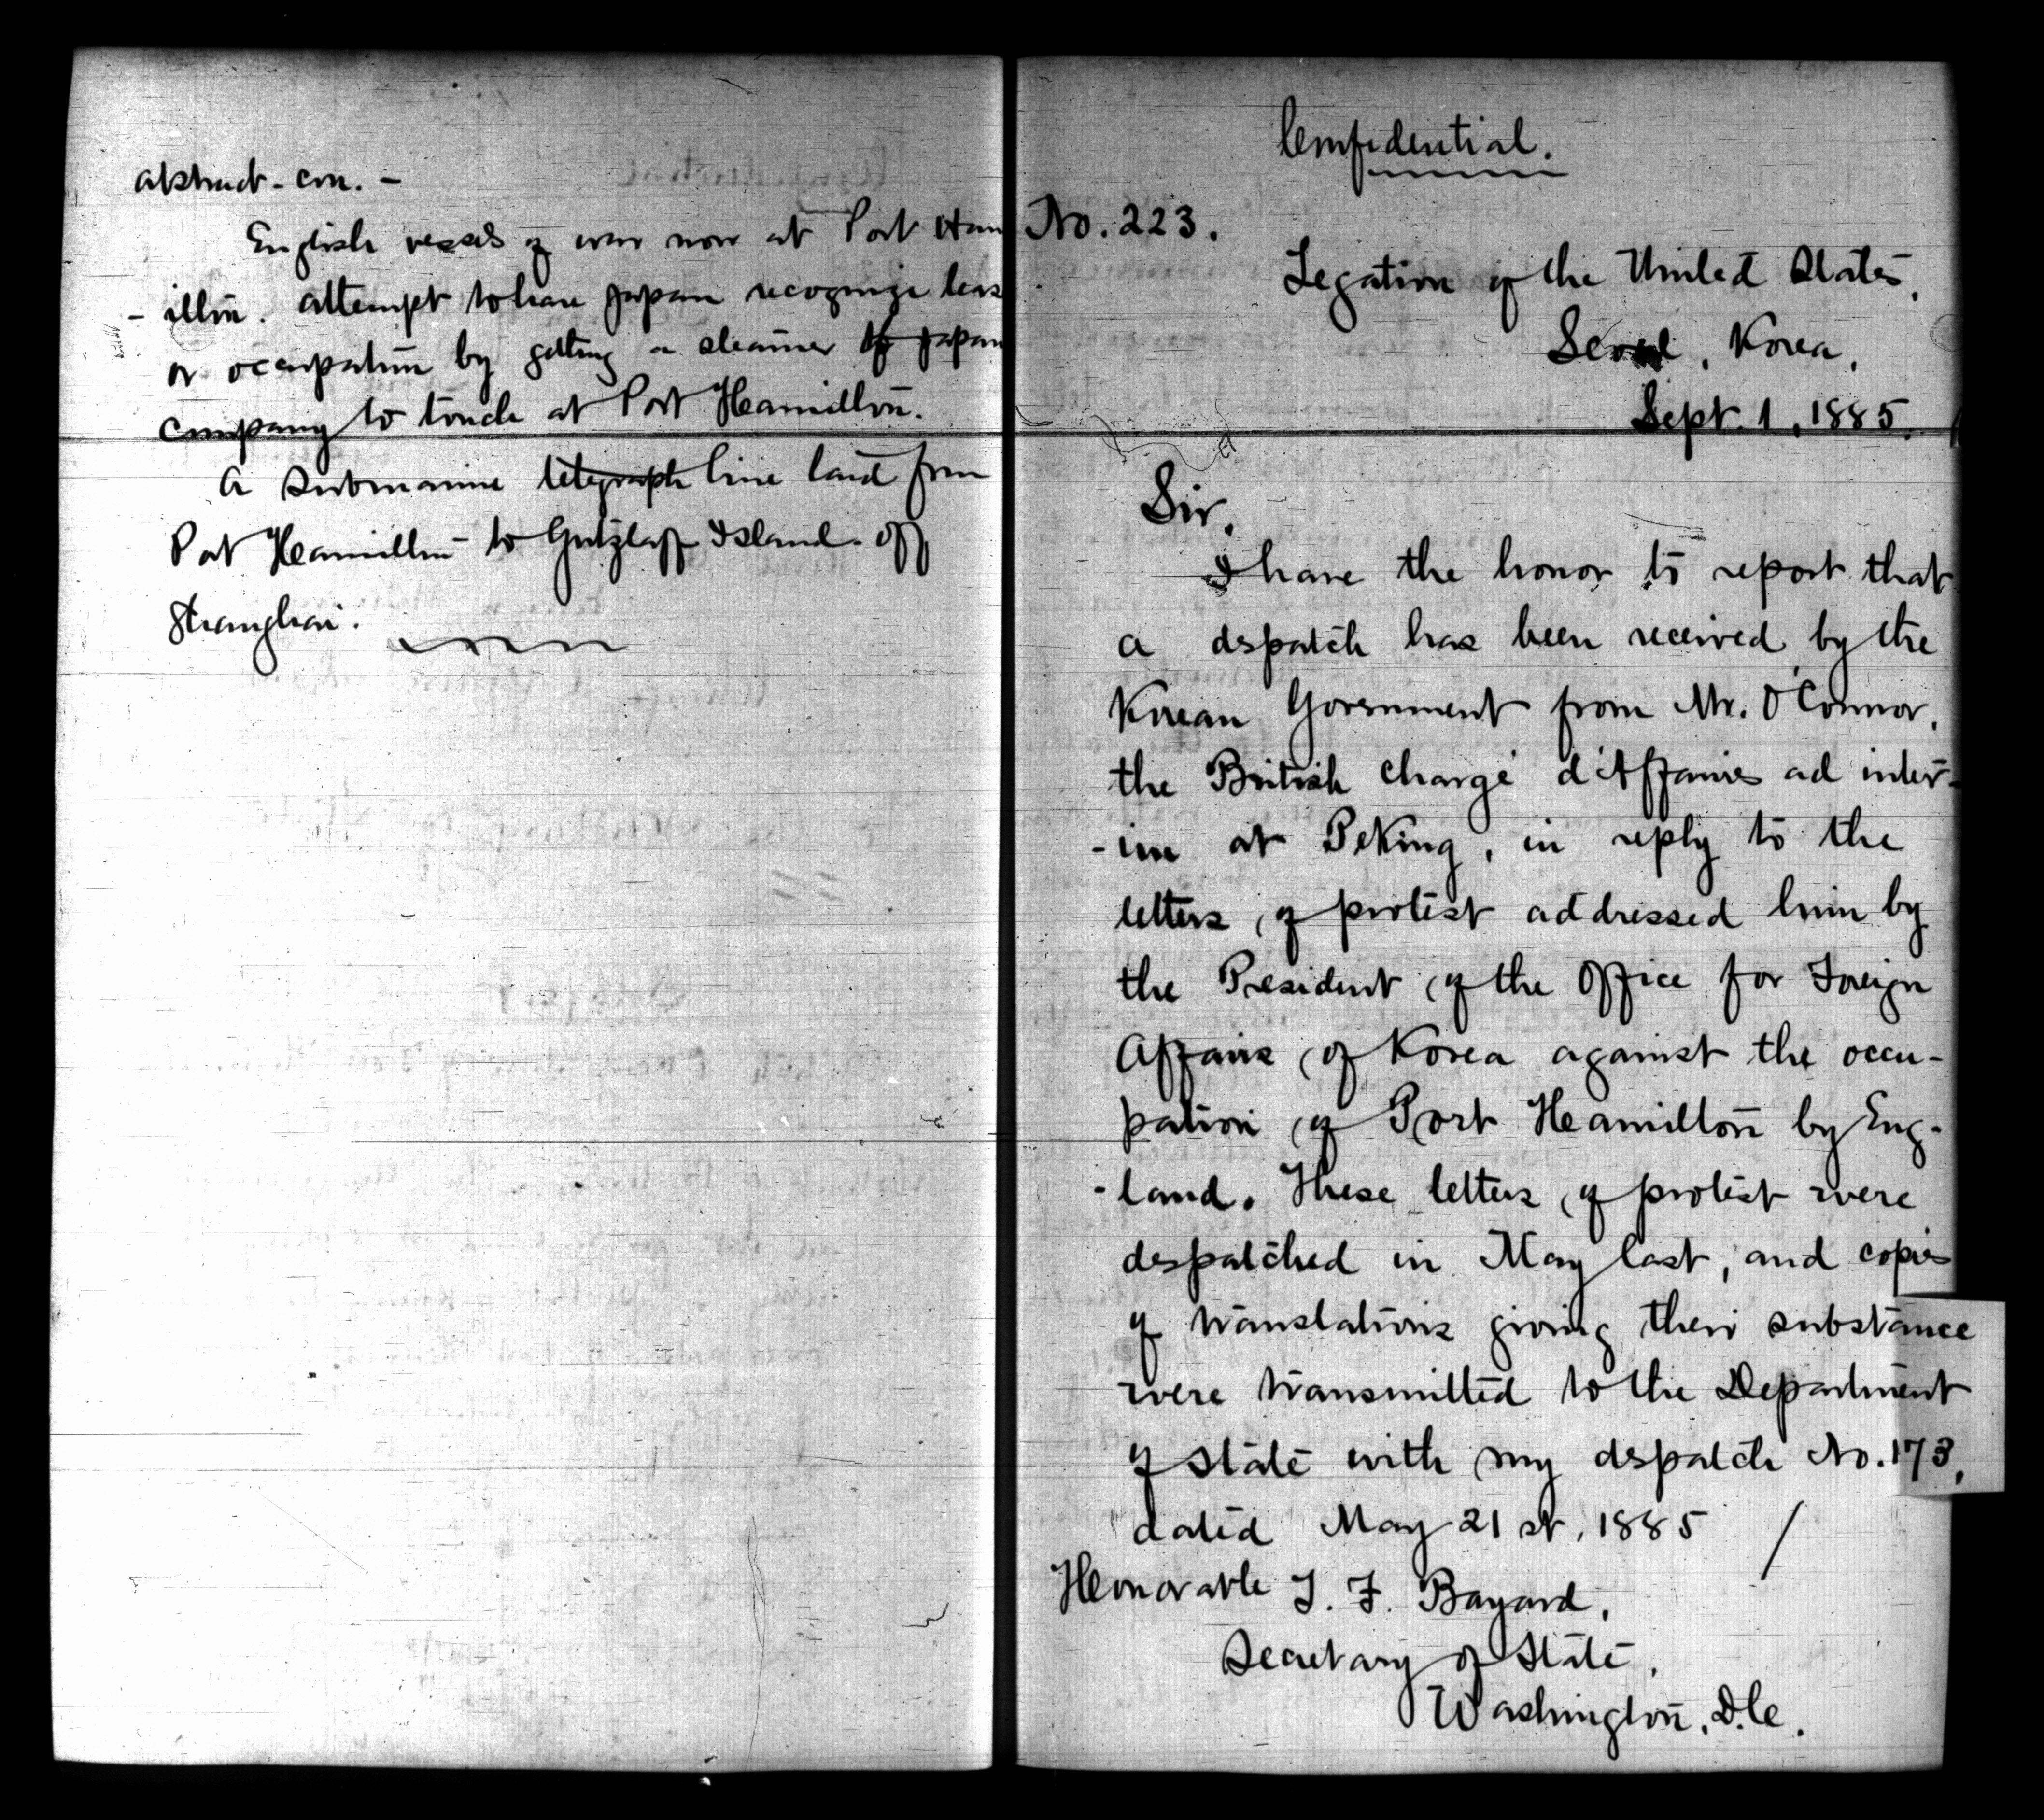 abstract - con. -
English vessels of war now at Port Ham
- ilton. attempt to have Japan recognize leas
or occupation by getting a steamer of Japan
company to touch at Port Hamilton.
A submarine telegraph line laid from
Port Hamilton to Gutzlaff Island off
Shanghai.
Confidential.
No. 223.
Legation of the United States,
Seoul, Korea,
Sept. 1, 1885.
Sir,
I have the honor to report that
a dspatch has been received by the
Korean Government from Mr. O'Connor,
the British Chargé d'Affaires ad inter-
- im at Peking, in reply to the
letters of protest addressed him by
the President of the Office for Foreign
Affairs of Korea against the occu-
pation of Port Hamilton by Eng-
- land. These letters of protest were
despatched in May last, and copies
of translations giving their substance
were transmitted to the Department
of State with my dspatch No. 173,
dated May 21st, 1885 /
Honorable T. F. Bayard,
Secretary of State,
Washington, D.C.